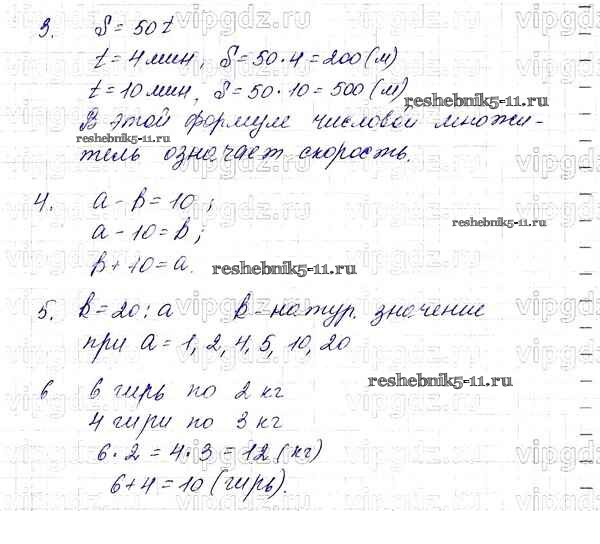 3. S = 50t
t = 4 мин, S = 50·4 = 200 (м)
t = 10 мин, S = 50·10 = 500 (м)
reshebnik5-11.ru
В этой формуле числовой множи-
reshebnik5-11.ru
тель означает скорость.
4. a - b = 10;
a - 10 = b;
reshebnik5-11.ru
b + 10 = a.
reshebnik5-11.ru
5. b = 20 : a b - натур. значение
при a = 1, 2, 4, 5, 10, 20
reshebnik5-11.ru
6 6 гирь по 2 кг
4 гири по 3 кг
6·2 = 4·3 = 12 (кг)
6 + 4 = 10 (гирь).
vipgdz.ru